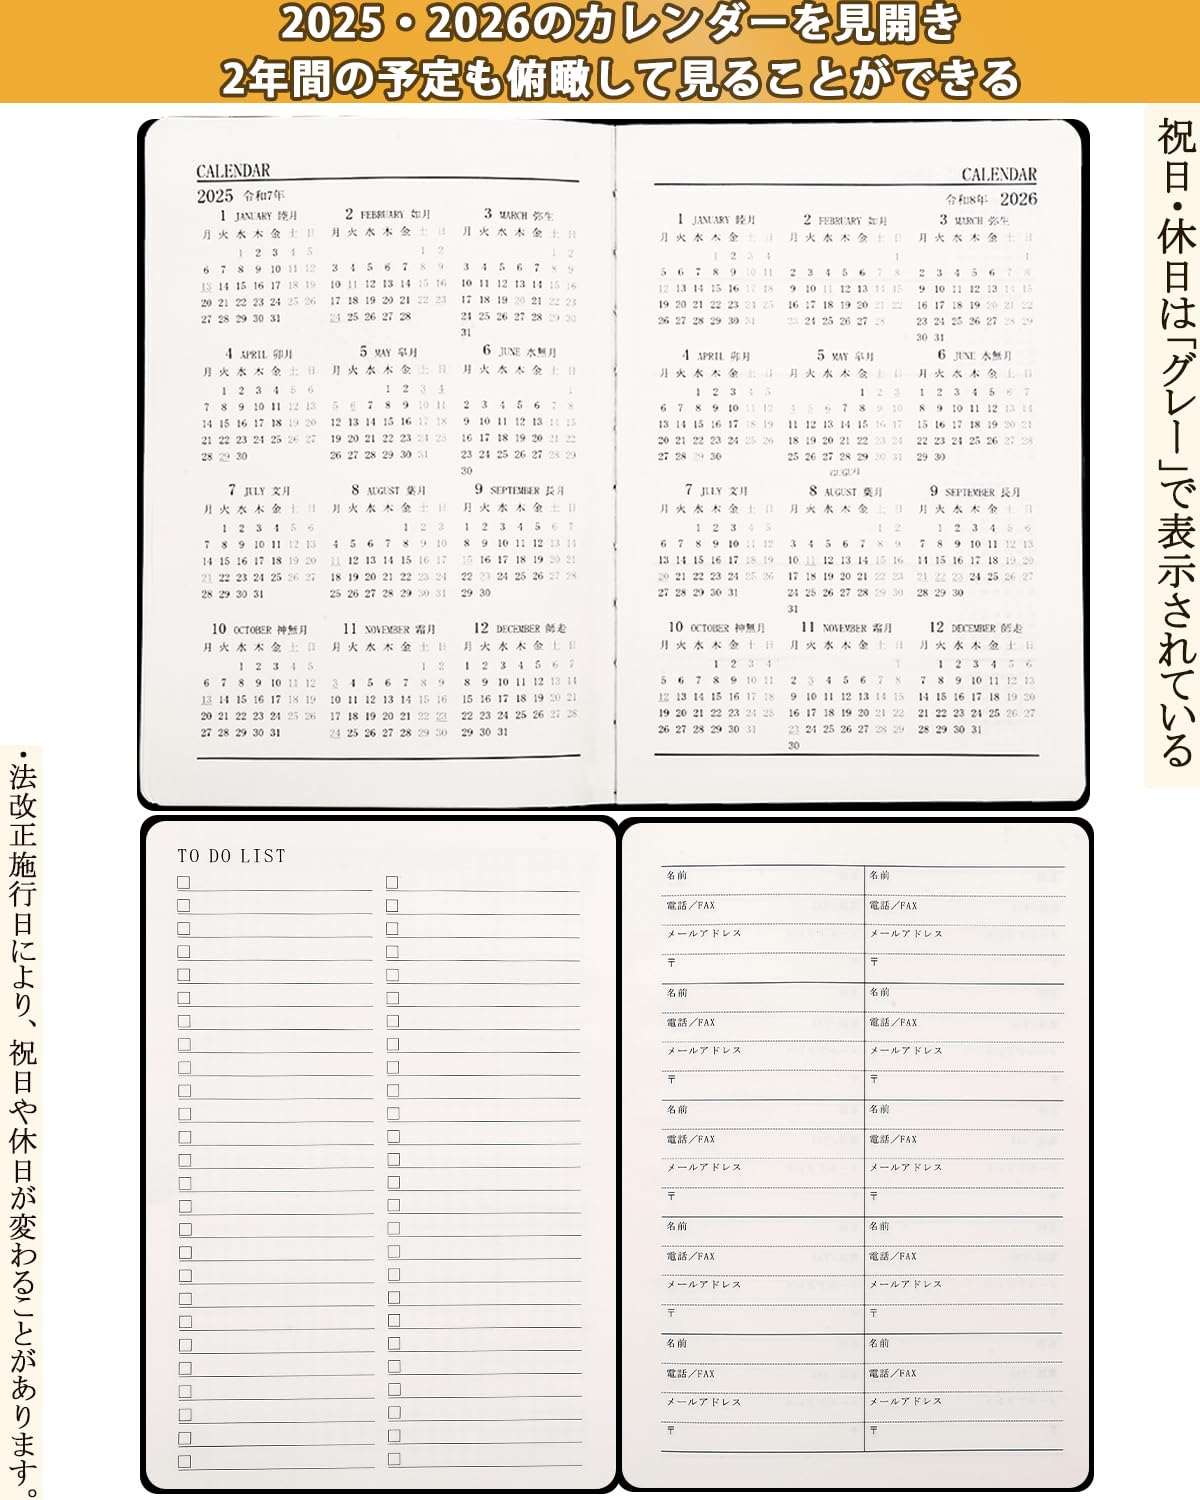 2025・2026のカレンダーを見開き
2年間の予定も俯瞰して見ることができる
祝日・休日は「グレー」で表示されている
CALENDAR
2025 令和7年
1 JANUARY 睦月
2 FEBRUARY 如月
3 MARCH 弥生
月 火 水 木 金 土 日
月 火 水 木 金 土 日
月 火 水 木 金 土 日
1 2 3 4 5
1 2
1 2
6 7 8 9 10 11 12
3 4 5 6 7 8 9
3 4 5 6 7 8 9
13 14 15 16 17 18 19
10 11 12 13 14 15 16
10 11 12 13 14 15 16
20 21 22 23 24 25 26
17 18 19 20 21 22 23
17 18 19 20 21 22 23
27 28 29 30 31
24 25 26 27 28
24 25 26 27 28 29 30
31
4 APRIL 卯月
5 MAY 皐月
6 JUNE 水無月
月 火 水 木 金 土 日
月 火 水 木 金 土 日
月 火 水 木 金 土 日
1 2 3 4 5 6
1 2 3 4
1
7 8 9 10 11 12 13
5 6 7 8 9 10 11
2 3 4 5 6 7 8
14 15 16 17 18 19 20
12 13 14 15 16 17 18
9 10 11 12 13 14 15
21 22 23 24 25 26 27
19 20 21 22 23 24 25
16 17 18 19 20 21 22
28 29 30
26 27 28 29 30 31
23 24 25 26 27 28 29
30
7 JULY 文月
8 AUGUST 葉月
9 SEPTEMBER 長月
月 火 水 木 金 土 日
月 火 水 木 金 土 日
月 火 水 木 金 土 日
1 2 3 4 5 6
1 2 3
1 2 3 4 5 6 7
7 8 9 10 11 12 13
4 5 6 7 8 9 10
8 9 10 11 12 13 14
14 15 16 17 18 19 20
11 12 13 14 15 16 17
15 16 17 18 19 20 21
21 22 23 24 25 26 27
18 19 20 21 22 23 24
22 23 24 25 26 27 28
28 29 30 31
25 26 27 28 29 30 31
29 30
10 OCTOBER 神無月
11 NOVEMBER 霜月
12 DECEMBER 師走
月 火 水 木 金 土 日
月 火 水 木 金 土 日
月 火 水 木 金 土 日
1 2 3 4 5
1 2
1 2 3 4 5 6 7
6 7 8 9 10 11 12
3 4 5 6 7 8 9
8 9 10 11 12 13 14
13 14 15 16 17 18 19
10 11 12 13 14 15 16
15 16 17 18 19 20 21
20 21 22 23 24 25 26
17 18 19 20 21 22 23
22 23 24 25 26 27 28
27 28 29 30 31
24 25 26 27 28 29 30
29 30 31
CALENDAR
令和8年 2026
1 JANUARY 睦月
2 FEBRUARY 如月
3 MARCH 弥生
月 火 水 木 金 土 日
月 火 水 木 金 土 日
月 火 水 木 金 土 日
1 2 3 4
1
1
5 6 7 8 9 10 11
2 3 4 5 6 7 8
2 3 4 5 6 7 8
12 13 14 15 16 17 18
9 10 11 12 13 14 15
9 10 11 12 13 14 15
19 20 21 22 23 24 25
16 17 18 19 20 21 22
16 17 18 19 20 21 22
26 27 28 29 30 31
23 24 25 26 27 28
23 24 25 26 27 28 29
30 31
4 APRIL 卯月
5 MAY 皐月
6 JUNE 水無月
月 火 水 木 金 土 日
月 火 水 木 金 土 日
月 火 水 木 金 土 日
1 2 3 4 5
1 2 3
1 2 3 4 5 6 7
6 7 8 9 10 11 12
4 5 6 7 8 9 10
8 9 10 11 12 13 14
13 14 15 16 17 18 19
11 12 13 14 15 16 17
15 16 17 18 19 20 21
20 21 22 23 24 25 26
18 19 20 21 22 23 24
22 23 24 25 26 27 28
27 28 29 30
25 26 27 28 29 30 31
29 30
7 JULY 文月
8 AUGUST 葉月
9 SEPTEMBER 長月
月 火 水 木 金 土 日
月 火 水 木 金 土 日
月 火 水 木 金 土 日
1 2 3 4 5
1 2
1 2 3 4 5 6
6 7 8 9 10 11 12
3 4 5 6 7 8 9
7 8 9 10 11 12 13
13 14 15 16 17 18 19
10 11 12 13 14 15 16
14 15 16 17 18 19 20
20 21 22 23 24 25 26
17 18 19 20 21 22 23
21 22 23 24 25 26 27
27 28 29 30 31
24 25 26 27 28 29 30
28 29 30
31
10 OCTOBER 神無月
11 NOVEMBER 霜月
12 DECEMBER 師走
月 火 水 木 金 土 日
月 火 水 木 金 土 日
月 火 水 木 金 土 日
1 2 3 4
1
1 2 3 4 5 6
5 6 7 8 9 10 11
2 3 4 5 6 7 8
7 8 9 10 11 12 13
12 13 14 15 16 17 18
9 10 11 12 13 14 15
14 15 16 17 18 19 20
19 20 21 22 23 24 25
16 17 18 19 20 21 22
21 22 23 24 25 26 27
26 27 28 29 30 31
23 24 25 26 27 28 29
28 29 30 31
30
・法改正施行日により、祝日や休日が変わることがあります。
TO DO LIST
名前 名前
電話／FAX 電話／FAX
メールアドレス メールアドレス
〒 〒
名前 名前
電話／FAX 電話／FAX
メールアドレス メールアドレス
〒 〒
名前 名前
電話／FAX 電話／FAX
メールアドレス メールアドレス
〒 〒
名前 名前
電話／FAX 電話／FAX
メールアドレス メールアドレス
〒 〒
名前 名前
電話／FAX 電話／FAX
メールアドレス メールアドレス
〒 〒